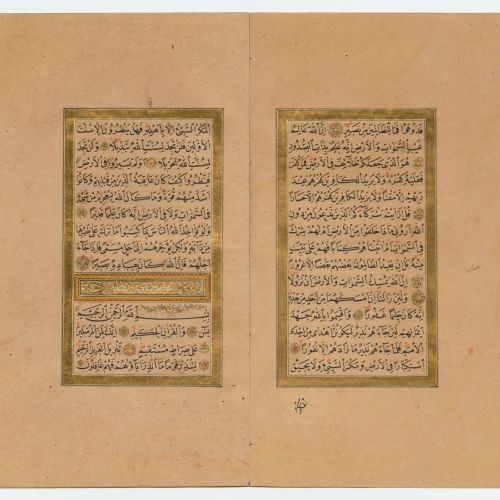 فَذُوقُوا فَمَا لِلظَّالِمِينَ مِنْ نَصِيرٍ اِنَّ اللّٰهَ عَالِمُ
غَيْبِ السَّمٰوَاتِ وَالْاَرْضِ اِنَّهُ عَلِيمٌ بِذَاتِ الصُّدُورِ
هُوَ الَّذِي جَعَلَكُمْ خَلَائِفَ فِي الْاَرْضِ فَمَنْ كَفَرَ
فَعَلَيْهِ كُفْرُهُ وَلَا يَزِيدُ الْكَافِرِينَ كُفْرُهُمْ عِنْدَ
رَبِّهِمْ اِلَّا مَقْتًا وَلَا يَزِيدُ الْكَافِرِينَ كُفْرُهُمْ اِلَّا خَسَارًا
قُلْ اَرَاَيْتُمْ شُرَكَاءَكُمُ الَّذِينَ تَدْعُونَ مِنْ دُونِ
اللّٰهِ اَرُونِي مَاذَا خَلَقُوا مِنَ الْاَرْضِ اَمْ لَهُمْ شِرْكٌ
فِي السَّمٰوَاتِ اَمْ اٰتَيْنَاهُمْ كِتَابًا فَهُمْ عَلٰى بَيِّنَتٍ
مِنْهُ بَلْ اِنْ يَعِدُ الظَّالِمُونَ بَعْضُهُمْ بَعْضًا اِلَّا غُرُورًا
اِنَّ اللّٰهَ يُمْسِكُ السَّمٰوَاتِ وَالْاَرْضَ اَنْ تَزُولَا
وَلَئِنْ زَالَتَا اِنْ اَمْسَكَهُمَا مِنْ اَحَدٍ مِنْ بَعْدِهِ
اِنَّهُ كَانَ حَلِيمًا غَفُورًا وَاَقْسَمُوا بِاللّٰهِ جَهْدَ
اَيْمَانِهِمْ لَئِنْ جَاءَهُمْ نَذِيرٌ لَيَكُونُنَّ اَهْدٰى مِنْ اِحْدَى
الْاُمَمِ فَلَمَّا جَاءَهُمْ نَذِيرٌ مَا زَادَهُمْ اِلَّا نُفُورًا
اسْتِكْبَارًا فِي الْاَرْضِ وَمَكْرَ السَّيِّئِ وَلَا يَحِيقُ
الْمَكْرُ السَّيِّئُ اِلَّا بِاَهْلِهِ فَهَلْ يَنْظُرُونَ اِلَّا سُنَّتَ
الْاَوَّلِينَ فَلَنْ تَجِدَ لِسُنَّتِ اللّٰهِ تَبْدِيلًا وَلَنْ تَجِدَ
لِسُنَّتِ اللّٰهِ تَحْوِيلًا اَوَلَمْ يَسِيرُوا فِي الْاَرْضِ
فَيَنْظُرُوا كَيْفَ كَانَ عَاقِبَةُ الَّذِينَ مِنْ قَبْلِهِمْ وَكَانُوا
اَشَدَّ مِنْهُمْ قُوَّةً وَمَا كَانَ اللّٰهُ لِيُعْجِزَهُ مِنْ شَيْءٍ
فِي السَّمٰوَاتِ وَلَا فِي الْاَرْضِ اِنَّهُ كَانَ عَلِيمًا قَدِيرًا
وَلَوْ يُؤَاخِذُ اللّٰهُ النَّاسَ بِمَا كَسَبُوا مَا تَرَكَ عَلٰى ظَهْرِهَا
مِنْ دَابَّةٍ وَلٰكِنْ يُؤَخِّرُهُمْ اِلٰى اَجَلٍ مُسَمًّى فَاِذَا جَاءَ
اَجَلُهُمْ فَاِنَّ اللّٰهَ كَانَ بِعِبَادِهِ بَصِيرًا
بِسْمِ اللّٰهِ الرَّحْمٰنِ الرَّحِيمِ
يس وَالْقُرْاٰنِ الْحَكِيمِ اِنَّكَ لَمِنَ الْمُرْسَلِينَ
عَلٰى صِرَاطٍ مُسْتَقِيمٍ تَنْزِيلَ الْعَزِيزِ الرَّحِيمِ
لِتُنْذِرَ قَوْمًا مَا اُنْذِرَ اٰبَاؤُهُمْ فَهُمْ غَافِلُونَ